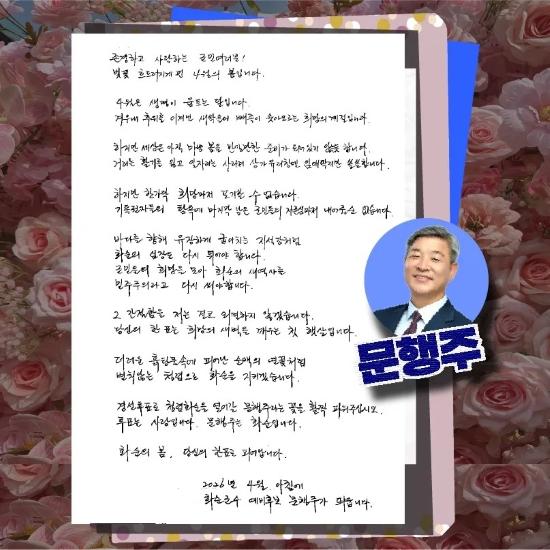 존경하고 사랑하는 군민여러분!
벚꽃 흐드러지게 핀 4월의 봄입니다.
4월은 생명이 움트는 달입니다.
겨우내 추위를 이겨낸 새싹들이 솟아오르는 희망의 계절입니다.
하지만 세상은 아직 마냥 봄을 만끽할만한 준비가 되어있지 않은듯 합니다.
거리는 활기를 잃고 일자리는 사라져 상가 유리창엔 임대딱지만 쓸쓸합니다.
하지만 한가닥 희망마저 포기할 수 없습니다.
기득권자들의 탐욕에 마지막 남은 군민들의 자존마저 내어줄순 없습니다.
바다를 향해 유장하게 굽이치는 지석강처럼
화순의 심장은 다시 뛰어야 합니다.
군민들의 희망을 모아 화순의 새역사는
민주주의라고 다시 써야합니다.
그 간절함을 저는 결코 외면하지 않겠습니다.
당신의 한 표는 희망의 새벽을 깨우는 첫 햇살입니다.
더러운 흙탕물속에 피어난 순백의 연꽃처럼
변치않는 청렴으로 화순을 지키겠습니다.
경선투표로 청렴화순을 열어갈 문행주라는 꽃을 활짝 피워주십시오.
투표는 사랑입니다. 문행주는 화순입니다.
화순의 봄, 당신의 한표로 피어납니다.
2026년 4월 아침에
화순군수 예비후보 문행주가 드립니다.
문행주